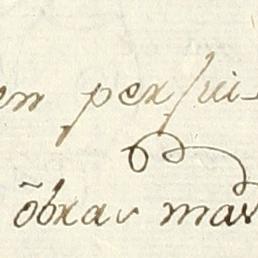 en perſui-
õbrar mar